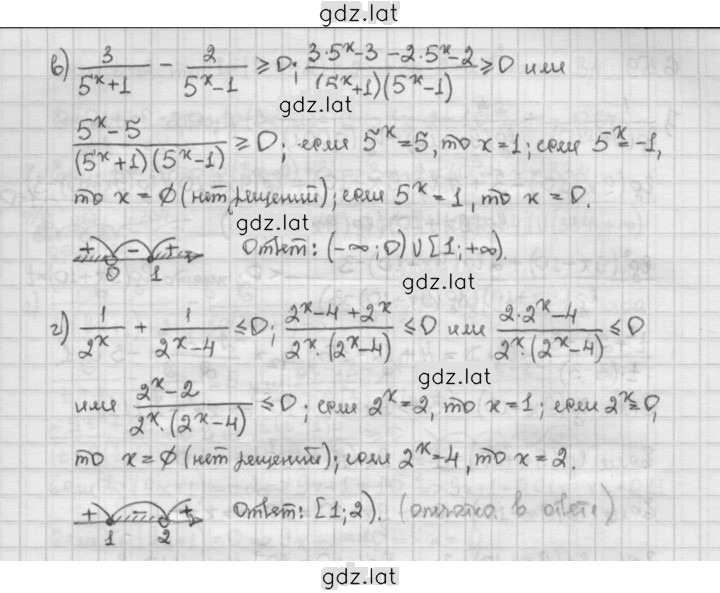 gdz.lat
в) 3/(5^x+1) − 2/(5^x−1) ≥ 0; (3·5^x−3−2·5^x−2)/((5^x+1)(5^x−1)) ≥ 0 или
gdz.lat
(5^x−5)/((5^x+1)(5^x−1)) ≥ 0; если 5^x=5, то x=1; если 5^x=-1,
то x=∅ (нет решений); если 5^x=1, то x=0.
gdz.lat
+ − + 0 1 Ответ: (-∞; 0) ∪ [1; +∞).
gdz.lat
г) 1/2^x + 1/(2^x−4) ≤ 0; (2^x−4+2^x)/(2^x·(2^x−4)) ≤ 0 или (2·2^x−4)/(2^x·(2^x−4)) ≤ 0
gdz.lat
или (2^x−2)/(2^x·(2^x−4)) ≤ 0; если 2^x=2, то x=1; если 2^x=0,
то x=∅ (нет решений); если 2^x=4, то x=2.
+ − + 1 2 Ответ: [1; 2). (опечатка в ответе)
gdz.lat